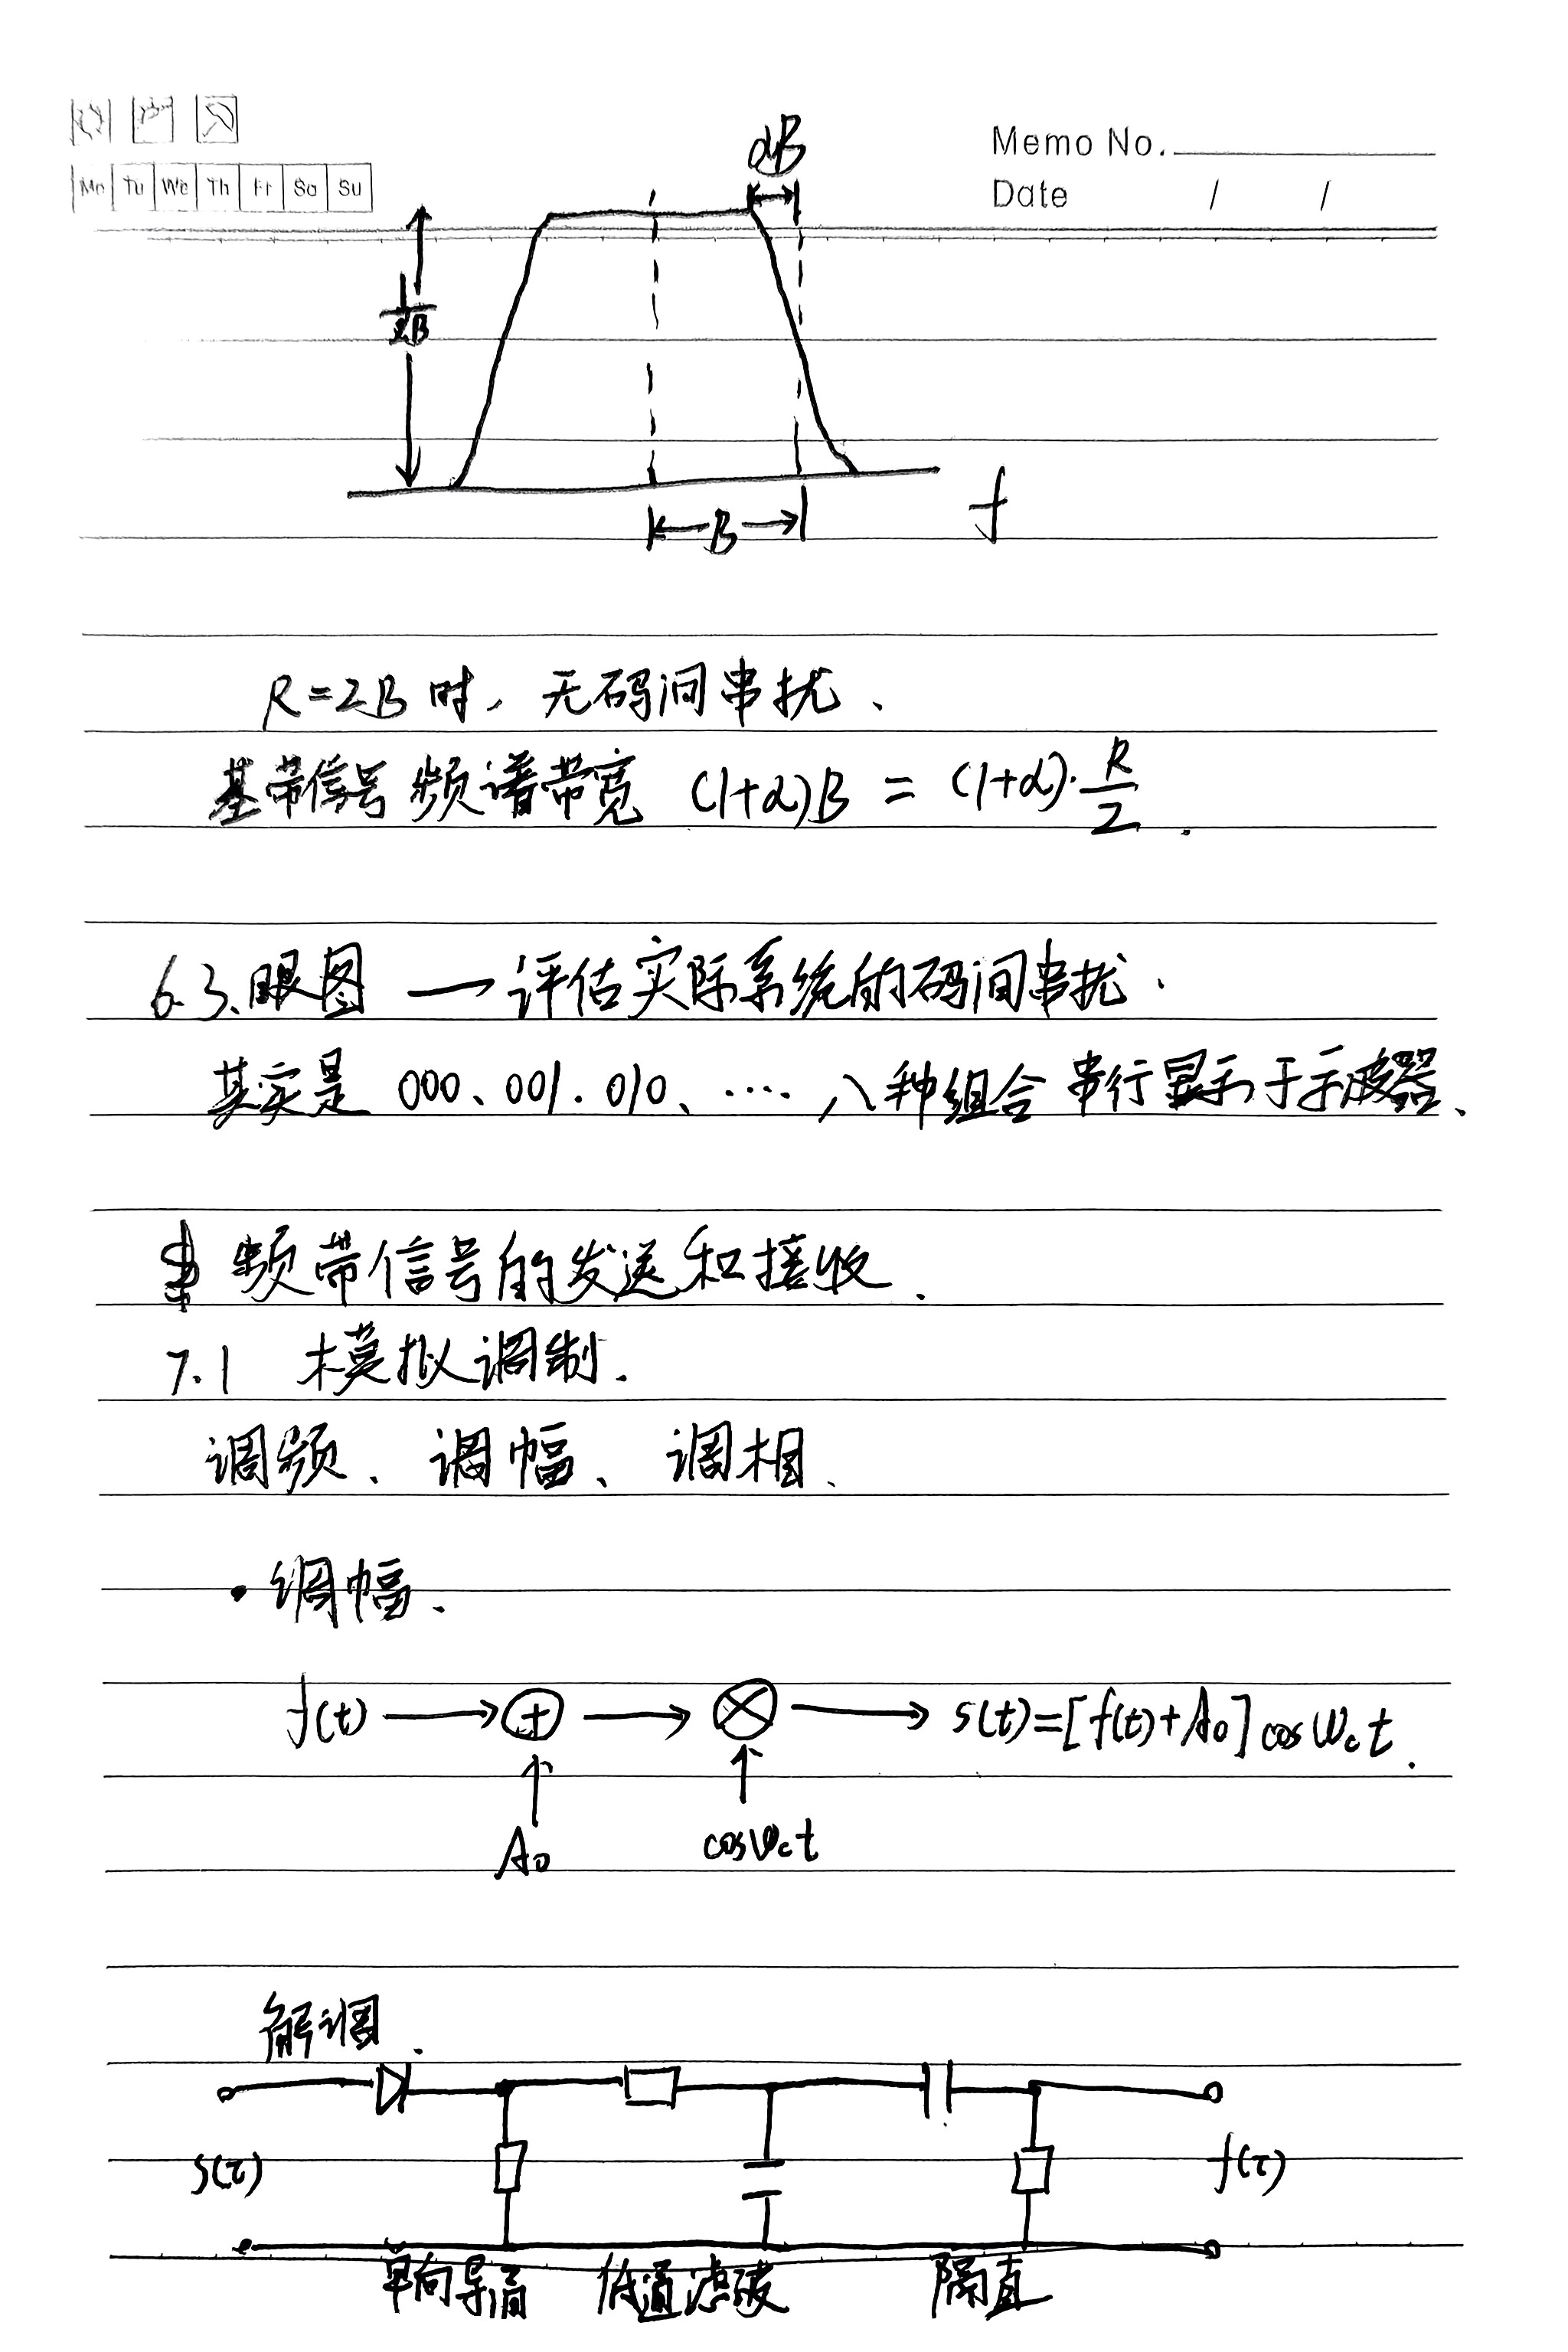 Mo Tu We Th Fr Sa Su
Memo No.
Date / /
αB
1/2B
B
f
R=2B 时, 无码间串扰、
基带信号频谱带宽 (1+α)B = (1+α)·R/2.
6.3、眼图 — 评估实际系统的码间串扰.
其实是 000、001.010、…. 八种组合串行显示于示波器、
频带信号的发送和接收.
7.1 模拟调制.
调频、调幅、调相、
·调幅、
f(t) → ⊕ → ⊗ → s(t)=[f(t)+A₀]cosω꜀t.
A₀ cosω꜀t
解调.
s(t) f(t)
单向导通 低通滤波 隔直